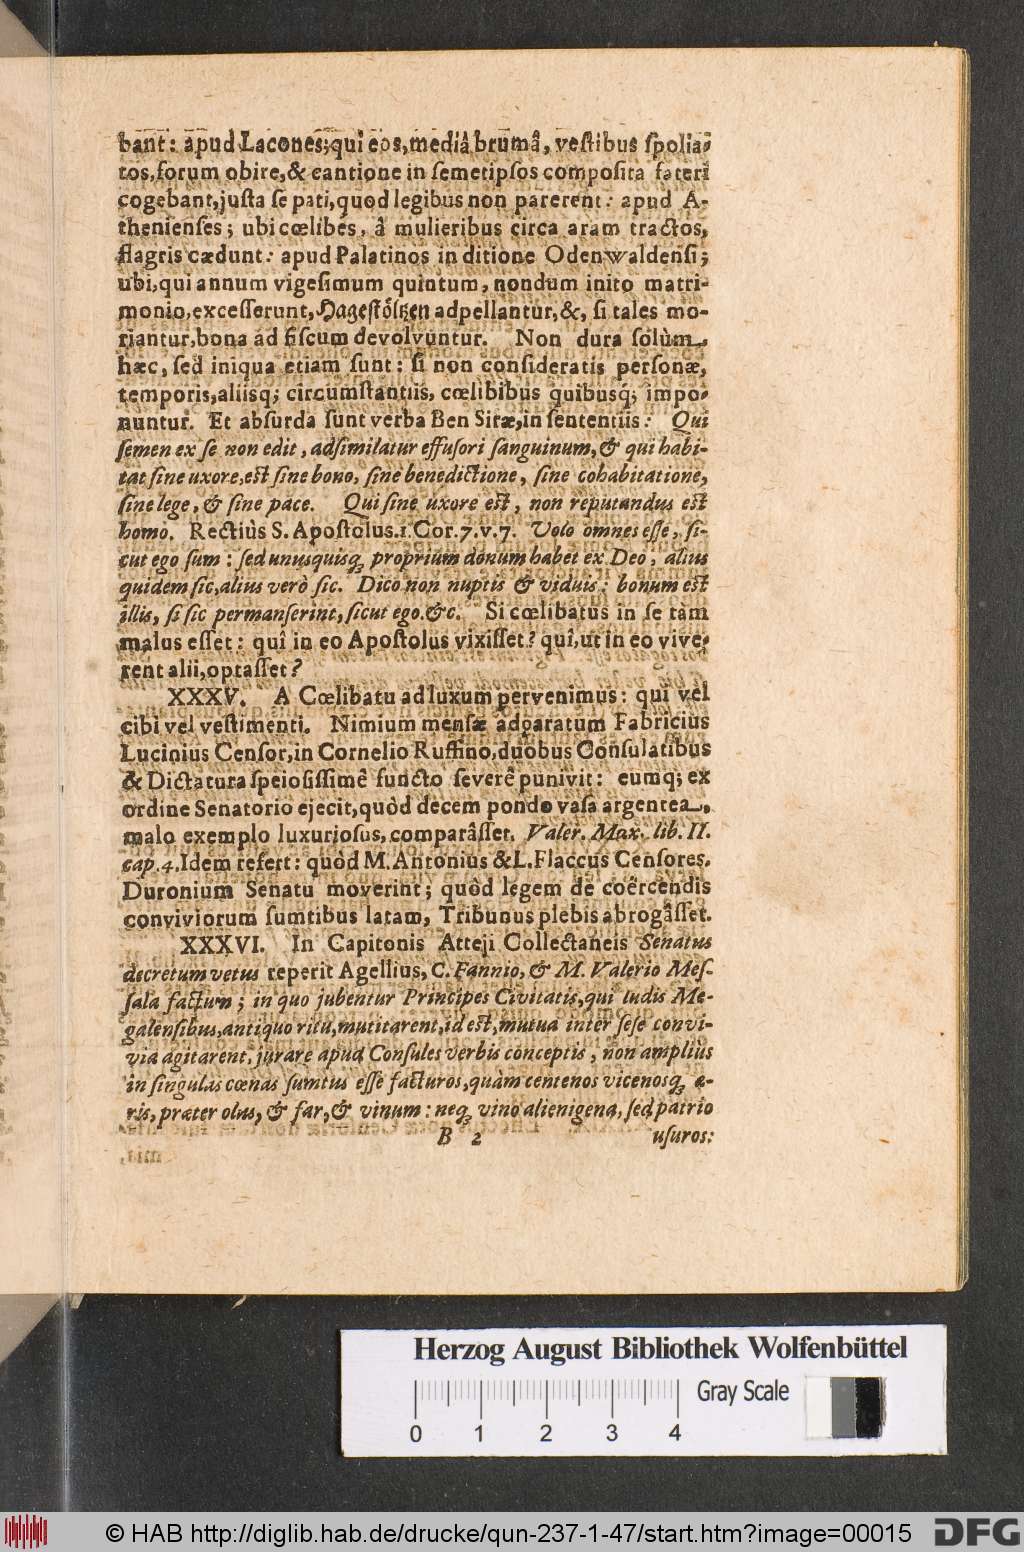 bant: apud Lacones; qui eos, mediâ brumâ, veſtibus ſpolia-
tos, forum obire, & cantione in ſemetipſos compoſita fateri
cogebant, juſta ſe pati, quod legibus non parerent: apud A-
thenienſes; ubi cœlibes, â mulieribus circa aram tractos,
flagris cædunt: apud Palatinos in ditione Odenwaldenſi;
ubi, qui annum vigeſimum quintum, nondum inito matri-
monio, exceſſerunt, Hageſtöltzen adpellantur, &, ſi tales mo-
riantur, bona ad fiſcum devolvuntur. Non dura ſolùm,
hæc, ſed iniqua etiam ſunt: ſi non conſideratis perſonæ,
temporis, aliisq; circumſtantiis, cœlibibus quibusq; impo-
nuntur. Et abſurda ſunt verba Ben Siræ, in ſententiis: Qui
ſemen ex ſe non edit, adſimilatur effuſori ſanguinum, & qui habi-
tat ſine uxore, eſt ſine bono, ſine benedictione, ſine cohabitatione,
ſine lege, & ſine pace. Qui ſine uxore eſt, non reputandus eſt
homo. Rectiùs S. Apoſtolus. 1. Cor. 7. v. 7. Volo omnes eſſe, ſi-
cut ego ſum: ſed unusquisq; proprium donum habet ex Deo, alius
quidem ſic, alius verò ſic. Dico non nuptis & viduis: bonum eſt
illis, ſi ſic permanſerint, ſicut ego. &c. Si cœlibatus in ſe tàm
malus eſſet: quî in eo Apoſtolus vixiſſet? quî, ut in eo vive-
rent alii, optaſſet?
XXXV. A Cœlibatu ad luxum pervenimus: qui vel
cibi vel veſtimenti. Nimium menſæ adparatum Fabricius
Lucinius Cenſor, in Cornelio Ruffino, duobus Conſulatibus
& Dictatura ſpeioſiſſimê functo ſeverê punivit: eumq; ex
ordine Senatorio ejecit, quòd decem pondo vaſa argentea,
malo exemplo luxurioſus, comparâſſet. Valer. Max. lib. II.
cap. 4. Idem refert: quòd M. Antonius & L. Flaccus Cenſores,
Duronium Senatu moverint; quòd legem de coêrcendis
conviviorum ſumtibus latam, Tribunus plebis abrogâſſet.
XXXVI. In Capitonis Atteji Collectaneis Senatus
decretum vetus reperit Agellius, C. Fannio, & M. Valerio Meſ-
ſala factum; in quo jubentur Principes Civitatis, qui ludis Me-
galenſibus, antiquo ritu, mutitarent, id eſt, mutua inter ſeſe convi-
via agitarent, jurare apud Conſules verbis conceptis, non amplius
in ſingulas cœnas ſumtus eſſe facturos, quàm centenos vicenosq; æ-
ris, præter olus, & far, & vinum: neq; vino alienigena, ſed patrio
B 2 uſuros:
Herzog August Bibliothek Wolfenbüttel
Gray Scale
0 1 2 3 4
© HAB http://diglib.hab.de/drucke/qun-237-1-47/start.htm?image=00015 DFG